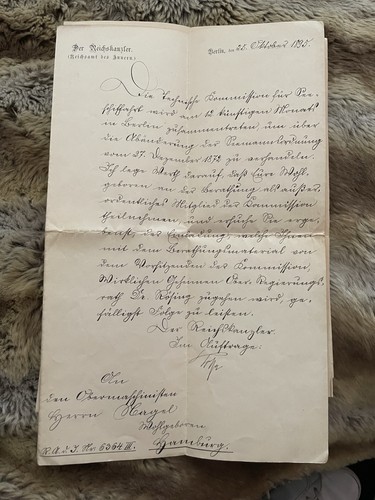 Der Reichskanzler.
(Reichsamt des Innern.)
Berlin, den 25. Oktober 1895.
Die Technische Kommission für See-
schifffahrt wird am 12. künftigen Monats
in Berlin zusammentreten, um über
die Abänderung der Seemannsordnung
vom 27. Dezember 1872 zu verhandeln.
Ich lege Werth darauf, daß Eure Wohl-
geboren an der Berathung als außer-
ordentliches Mitglied der Kommission
theilnehmen, und ersuche Sie erge-
benst, der Einladung, welche Ihnen
mit dem Berathungsmaterial von
dem Vorsitzenden der Kommission,
Wirklichen Geheimen Ober-Regierungs-
rath Dr. Rösing zugehen wird, ge-
fälligst Folge zu leisten.
Der Reichskanzler
Im Auftrage.
An
den Obermaschinisten
Herrn Nagel
Wohlgeboren
Hamburg.
R. A. d. I. No 6364 III.